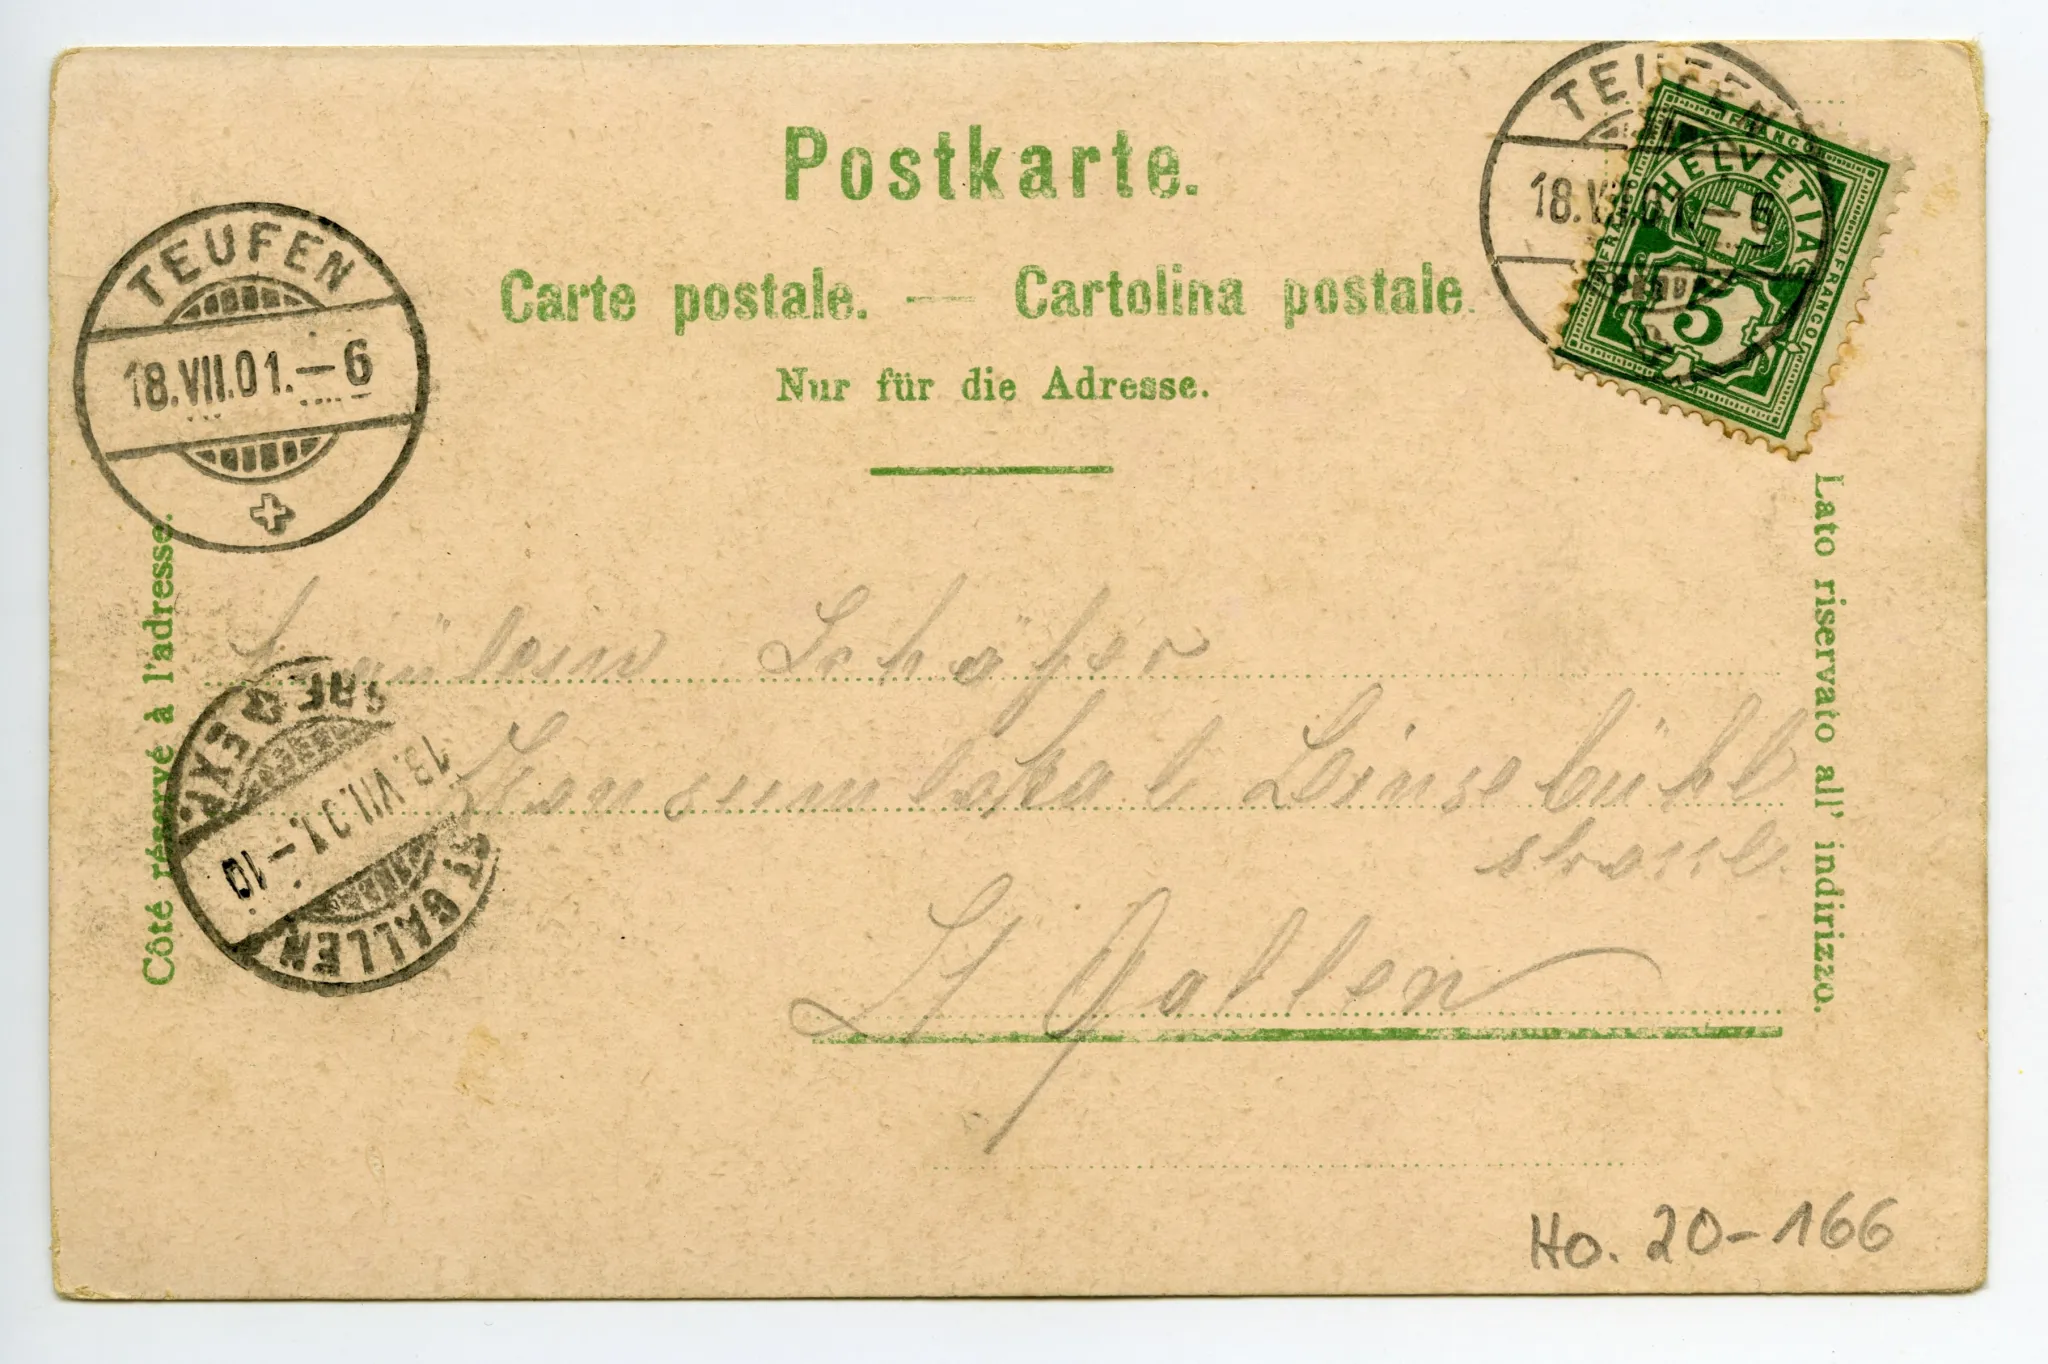 Postkarte.
Carte postale. — Cartolina postale.
Nur für die Adresse.
TEUFEN
18.VII.01.–6
TEUFEN
18.VII.01.–6
FRANCO
FRANCO
FRANCO
HELVETIA
5
Côté réservé à l'adresse.
Lato riservato all' indirizzo.
Fräulein Schäfer
Konsumlokal Linsebühl
strasse
St Gallen
ST. GALLEN
13.VII.01.–10
BRF. EXP.
Ho. 20-166